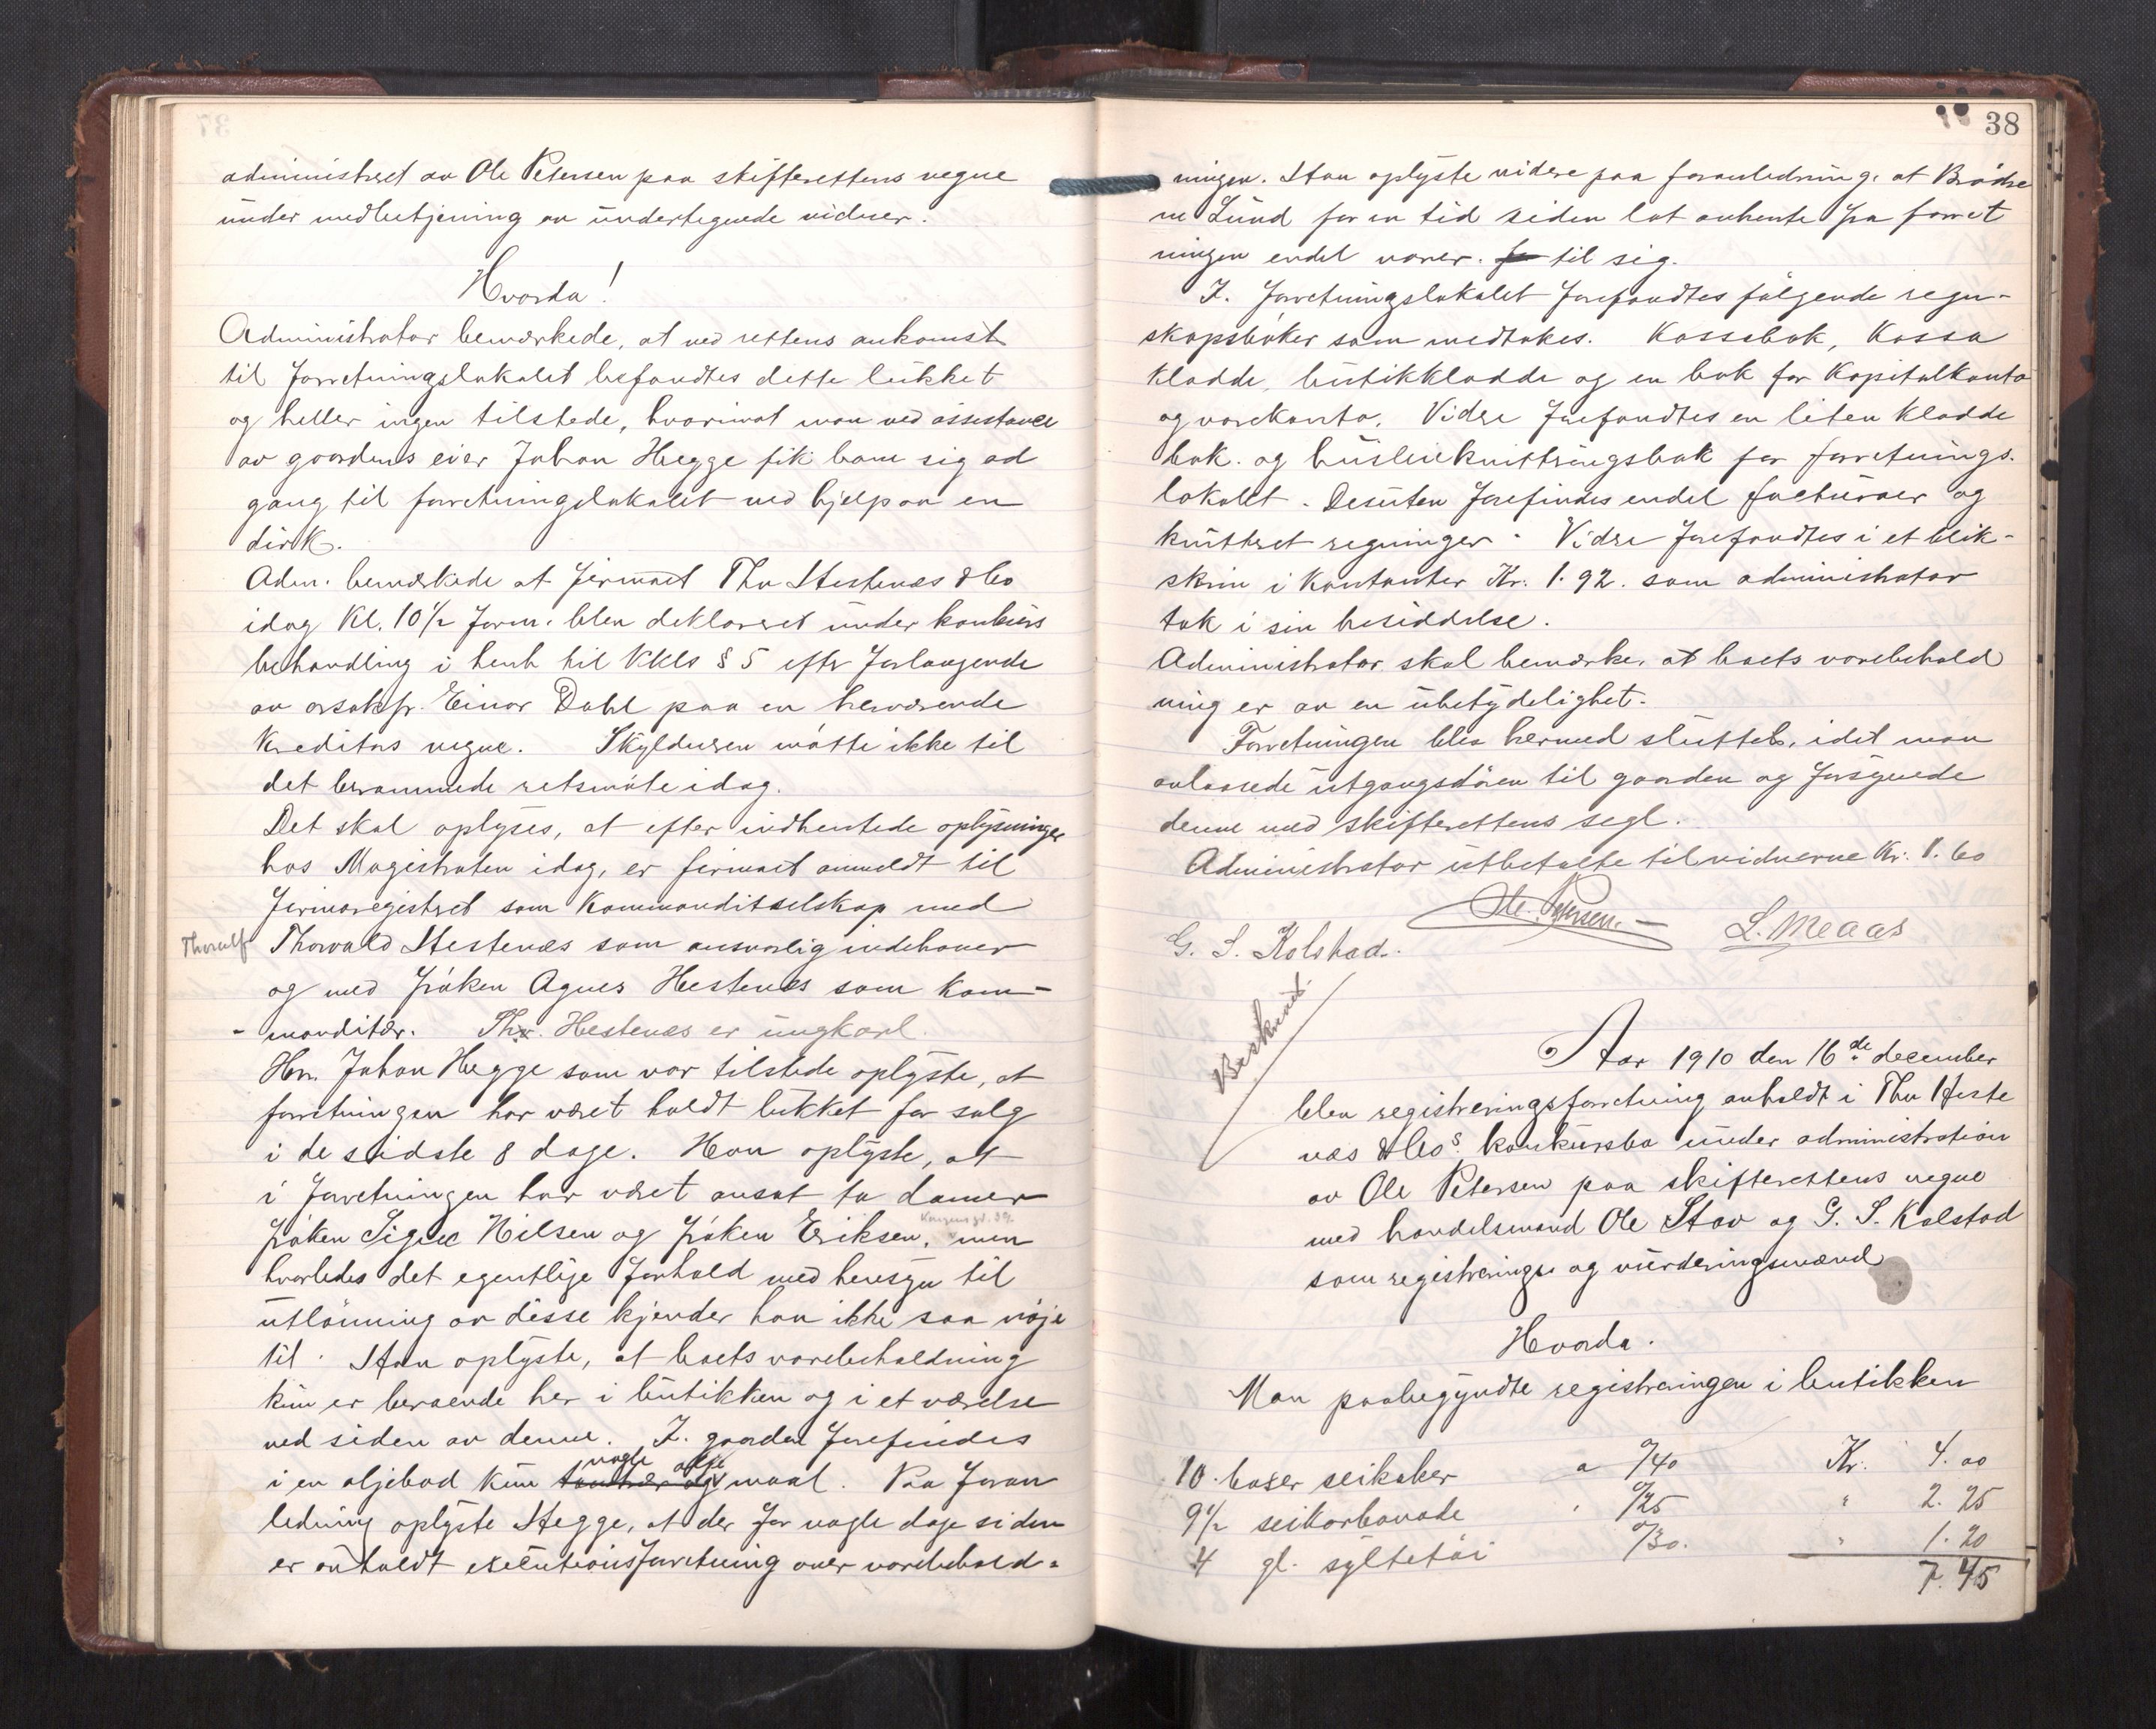 administret av Ole Petersen paa skifterettens vegne
under medbetjening av undertegnede vidner.
Hvorda!
Administrator bemærkede, at ved rettens ankomst
til forretningslokalet befandtes dette lukket
og heller ingen tilstede, hvorimot man ved assistance
av gaardens eier Johan Hegge fik bane sig ad
gang til forretningslokalet ved hjelp av en
dirk.
Adm. bemerkede at firmaet Thv Hestenæs & Co
idag Kl. 10½ form. blev deklareret under konkurs
behandling i henh til Kkls § 5 efter forlangende
av orsakfr. Einar Dahl paa en herværende
Kreditors vegne. Skyldneren møtte ikke til
det berammede retsmøte idag.
Det skal oplyses, at efter indhentede oplysninger
hos Magistraten idag, er firmaet anmeldt til
firmaregistret som Kommanditselskap med
Thoralf Thorvald Hestenæs som ansvarlig indehaver
og med frøken Agnes Hestenæs som kom-
- manditær. Thv. Hestenæs er ungkarl.
Hr. Johan Hegge som var tilstede oplyste, at
forretningen har været holdt lukket for salg
i de sidste 8 dage. Han oplyste, at
i forretningen har været ansat to damer
Kongensgt. 39.
frøken Signe Nilsen og frøken Eriksen, men
hvorledes det egentlige forhold med hensyn til
utlønning av disse kjender han ikke saa nøje
til. Han oplyste, at boets varebeholdning
kun er beroende her i butikken og i et værelse
ved siden av denne. I gaarden forefindes
nogle
i en oljebod kun maal. Paa foran
ledning oplyste Hegge, at der for nogle dage siden
er avholdt exekutionsforretning over varebehold-
38
ningen. Han oplyste videre paa foranledning, at Brødre
ne Lund for en tid siden lot avhente fra forret
ningen endel varer. til sig.
I. forretningslokalet forefandtes følgende regn-
skapsbøker som medtokes. Kassebok, Kassa
kladde, butikkladde og en bok for Kapitalkonto
og varekonto. Vidre forefandtes en liten kladde
bok. og husleiekvitteringsbok for forretnings-
lokalet. Desuten forefindes endel facturaer og
kvitteret regninger. Vidre forefandtes i et blik-
skrin i Kontanter Kr. 1.92. som administrator
tok i sin besiddelse.
Administrator skal bemærke, at boets varebehold
ning er av en ubetydelighet.
Forretningen blev hermed sluttet, idet man
avlaasede utgangsdøren til gaarden og forsynede
denne med skifterettens segl.
Administrator utbetalte til vidnerne Kr. 1.60
Ole Petersen.
G. S. Kolstad. L. Meaas
Aar 1910 den 16de december
blev registreringsforretning avholdt i Thv Heste
næs & Cos. konkursbo under administration
av Ole Petersen paa skifterettens vegne
med handelsmand Ole Stav og G. S. Kolstad
som registrerings og vurderingsmænd
Hvorda.
Man paabegyndte registreringen i butikken
10 boser seikaker a 0/40 Kr. 4.00
9½ seikarbonade " 0/25 " 2.25
4 gl. syltetøi 0/30. " 1.20
7.45